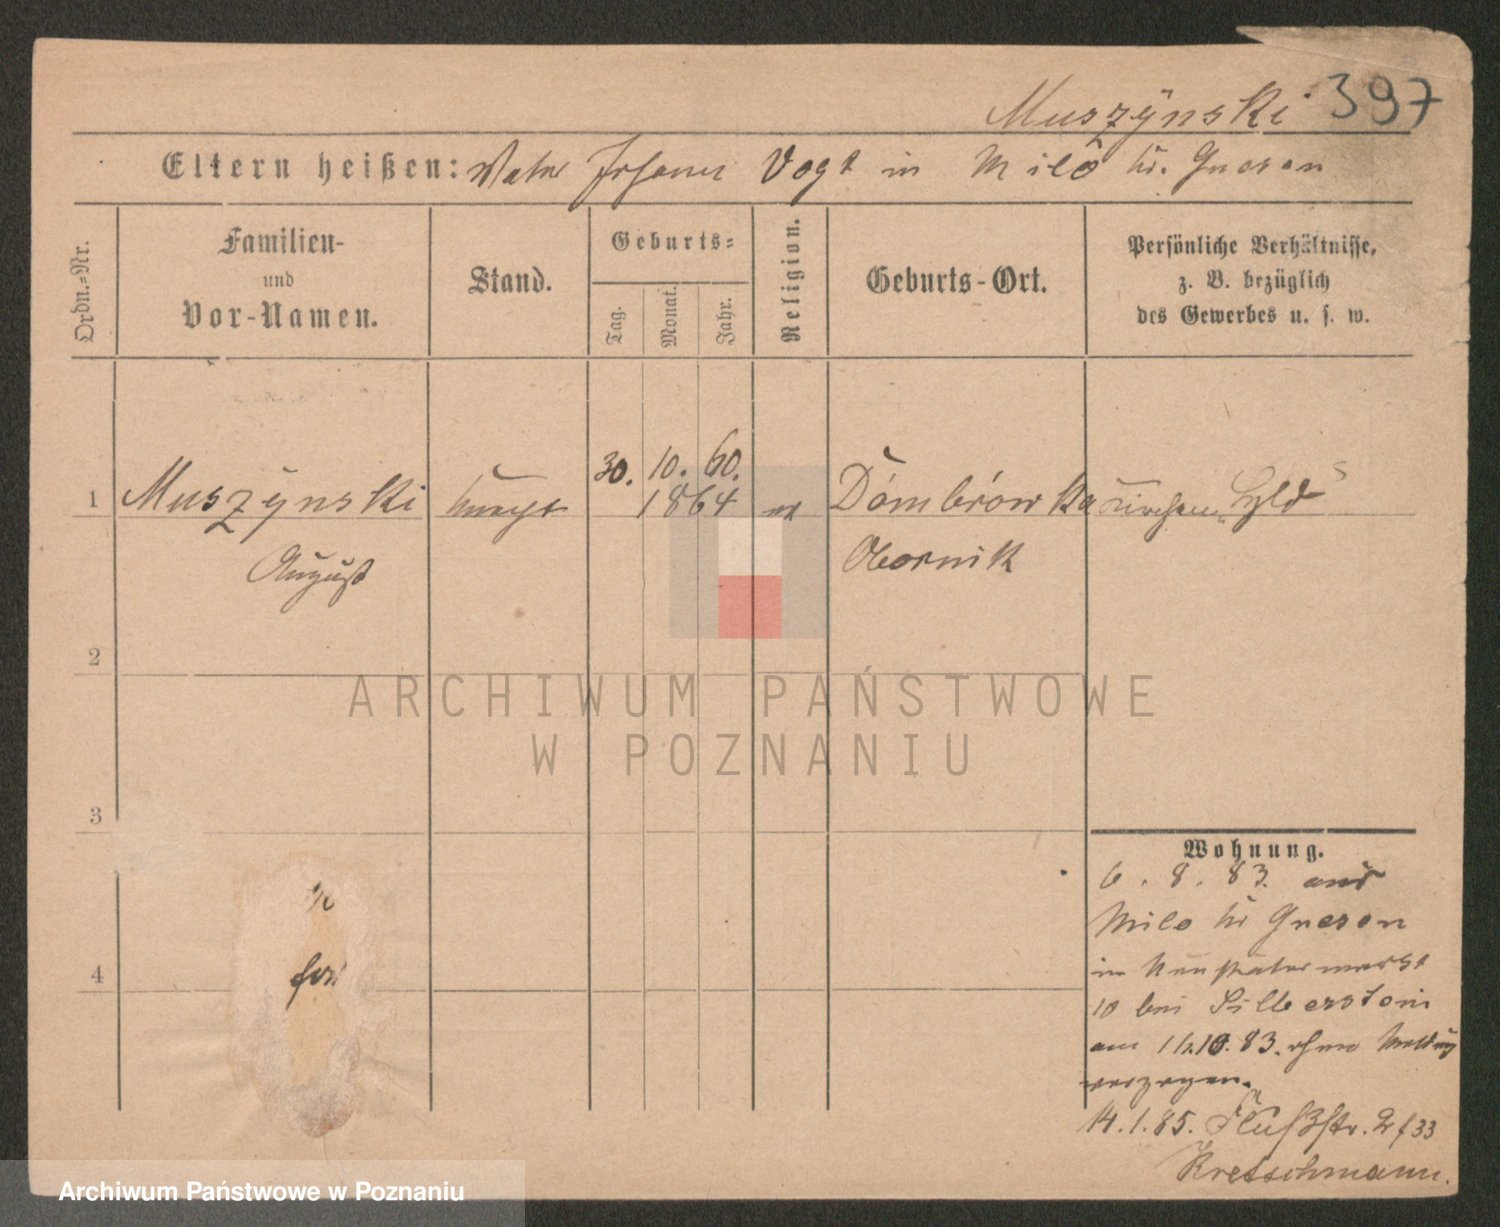 Muszÿnski 397
Eltern heißen: Vater Johann Vogt in Milo Kr. Gnesen
Ordn.=Nr.
Familien-
und
Vor-Namen.
Stand.
Geburts=
Tag.
Monat.
Jahr.
Religion.
Geburts-Ort.
Persönliche Verhältnisse,
z. B. bezüglich
des Gewerbes u. s. w.
30. 10. 60.
1 Muszÿnski Knecht 1864 Dombrówka
August Obornik
2
3
4
Wohnung.
6. 8. 83. aus
Milo Kr Gnesen
in Neustädtermarkt
10 bei Silberstein
am 10.83. ohne Meldung
verzogen.
14.1.85. Flußstr. 2 33
Kretschmann.
ARCHIWUM PAŃSTWOWE
W POZNANIU
Archiwum Państwowe w Poznaniu